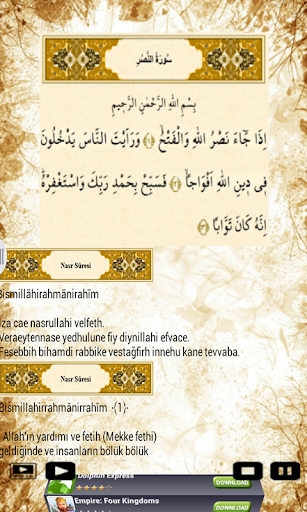 سُورَةُ النَّصْرِ
بِسْمِ اللهِ الرَّحْمٰنِ الرَّح۪يمِ
اِذَا جَٓاءَ نَصْرُ اللهِ وَالْفَتْحُۙ ﴿١﴾ وَرَاَيْتَ النَّاسَ يَدْخُلُونَ
ف۪ى د۪ينِ اللهِ اَفْوَاجاًۙ ﴿٢﴾ فَسَبِّحْ بِحَمْدِ رَبِّكَ وَاسْتَغْفِرْهُۜ
اِنَّهُ كَانَ تَوَّاباً ﴿٣﴾
Nasr Sûresi
Bismillâhirahmânirahîm
İza cae nasrullahi velfeth.
Veraeytennase yedhulune fiy diynillahi efvace.
Fesebbih bihamdi rabbike vestağfirh innehu kane tevvaba.
Nasr Sûresi
Bismillahirrahmânirrahîm ·(1)·
Allah'ın yardımı ve fetih (Mekke fethi)
geldiğinde ve insanların bölük bölük
Dolphin Express
DOWNLOAD
Empire: Four Kingdoms
DOWNLOAD